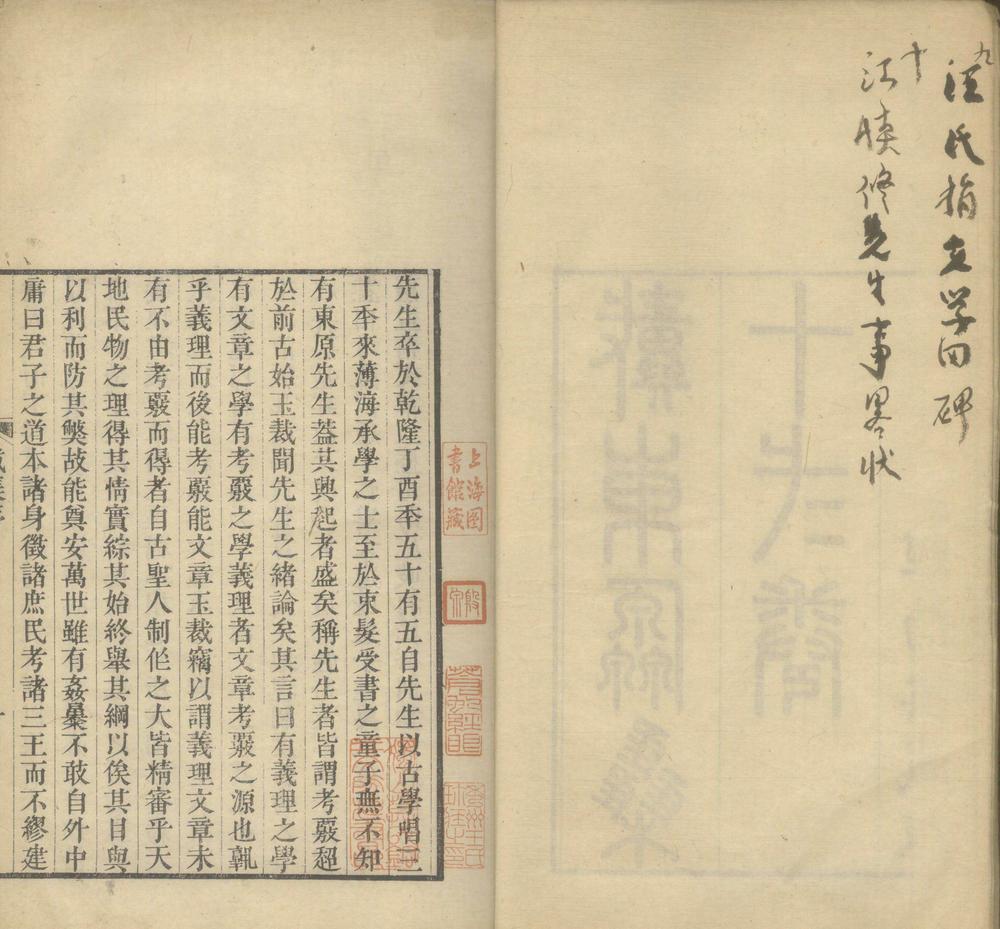 九
汪氏捐立学田碑
十
江慎修先生事畧状
上海图
書館藏
先生卒於乾隆丁酉秊五十有五自先生以古學唱三
十秊來薄海承學之士至於束髮受書之童子無不知
有東原先生葢其興起者盛矣稱先生者皆謂考覈超
於前古始玉裁聞先生之緒論矣其言曰有義理之學
有文章之學有考覈之學義理者文章考覈之源也孰
乎義理而後能考覈能文章玉裁竊以謂義理文章未
有不由考覈而得者自古聖人制作之大皆精審乎天
地民物之理得其情實綜其始終舉其綱以俟其目與
以利而防其獘故能奠安萬世雖有姦暴不敢自外中
庸曰君子之道本諸身徵諸庶民考諸三王而不繆建